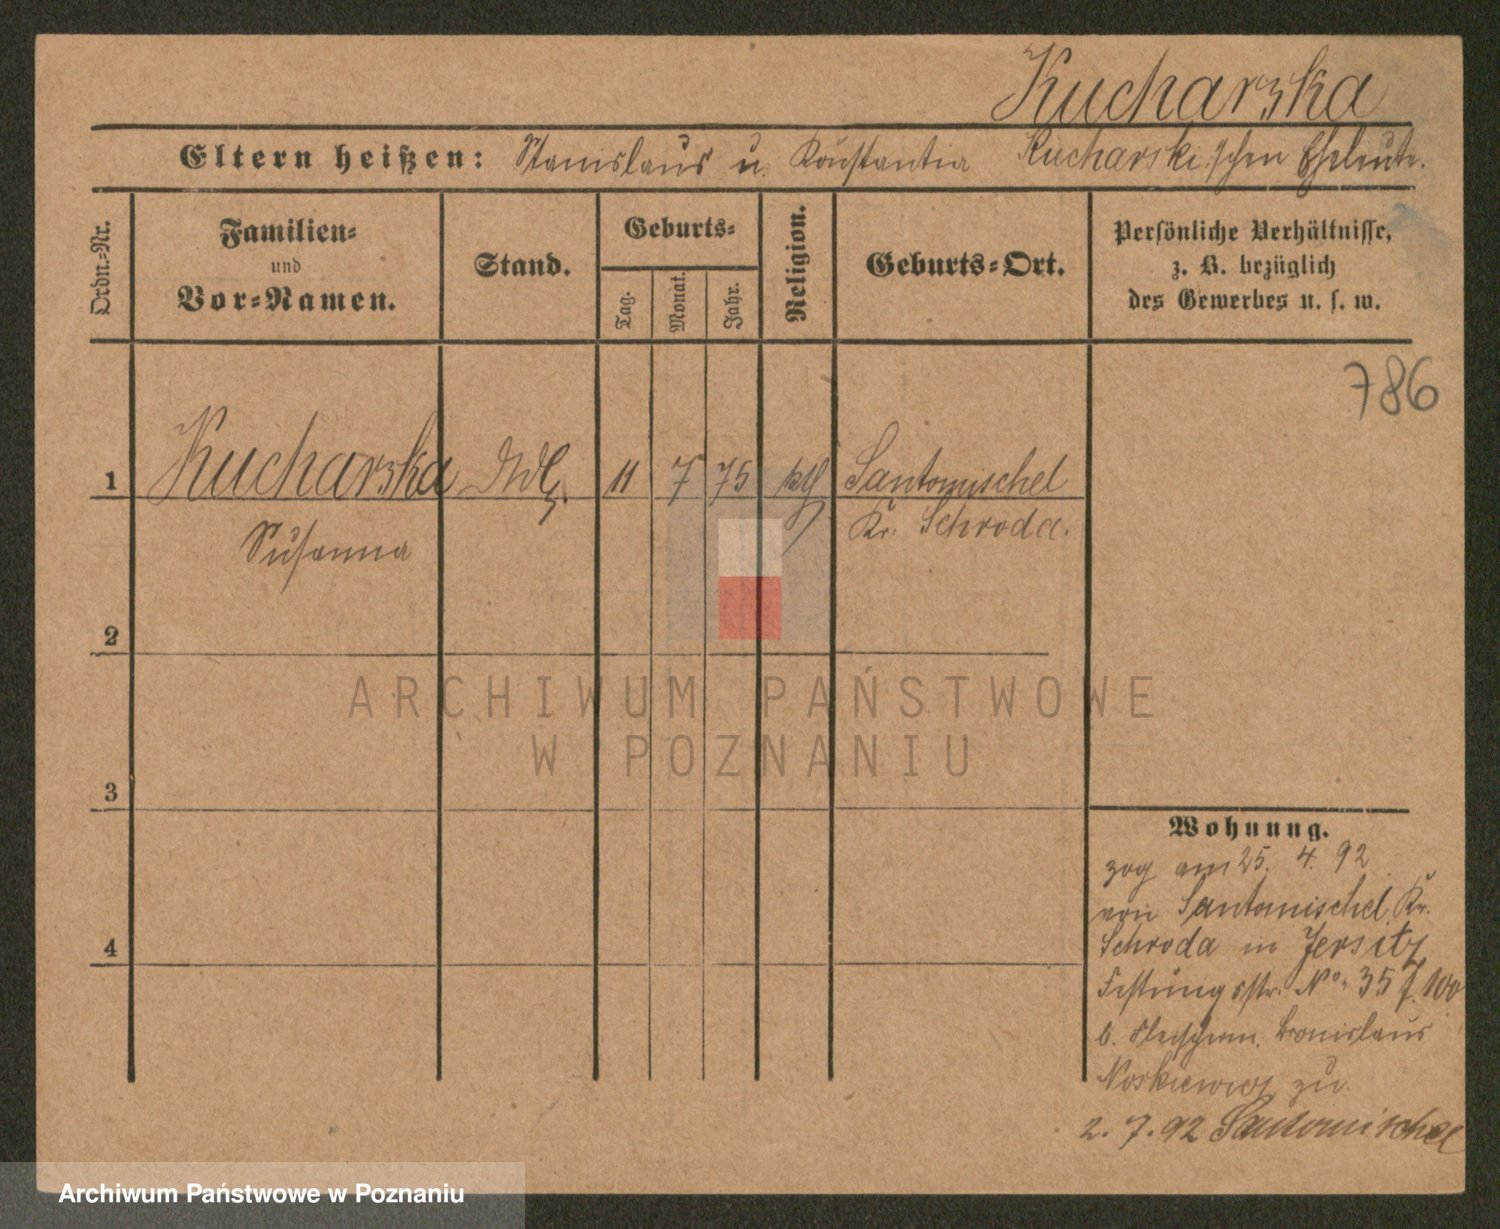 Kucharska
Eltern heißen: Stanislaus u. Konstantia Kucharski'schen Eheleute.
Ordn.-Nr.
Familien-
und
Vor-Namen.
Stand.
Geburts-
Tag.
Monat.
Jahr.
Religion.
Geburts-Ort.
Persönliche Verhältnisse,
z. B. bezüglich
des Gewerbes u. s. w.
786
1 Kucharska 11 7 75 kth Santomischel
Susanna Kr. Schroda.
2
ARCHIWUM PAŃSTWOWE
W POZNANIU
3
Wohnung.
zog am 25. 4. 92
von Santomischel Kr.
4
Schroda in Jersitz
Festungsstr. No. 35 100
b. Fleischerm. Bronislaus
Noskiewicz zu.
2. 7. 92 Santomischel
Archiwum Państwowe w Poznaniu